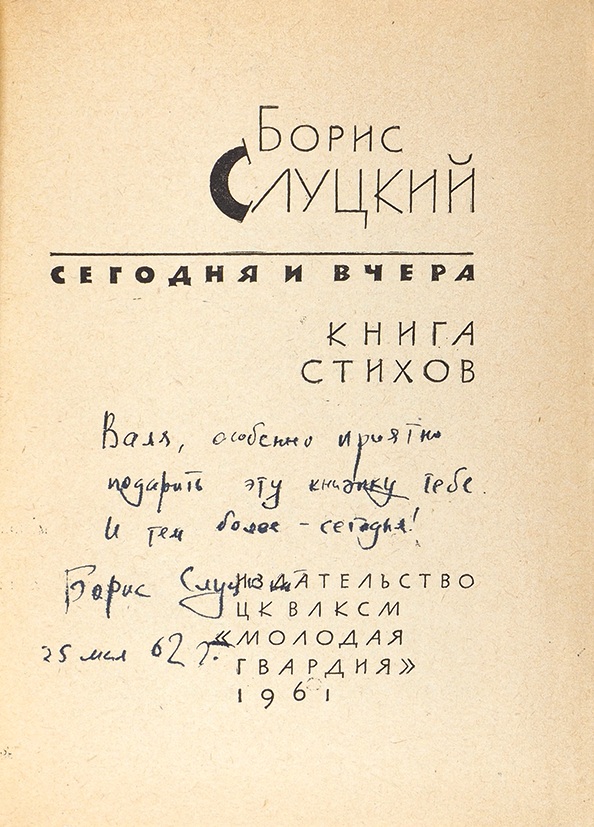 Борис
Слуцкий
СЕГОДНЯ И ВЧЕРА
КНИГА
СТИХОВ
Валя, особенно приятно
подарить эту книжку тебе.
И тем более – сегодня!
Борис Слуцкий
25 мая 62 г.
ИЗДАТЕЛЬСТВО
ЦК ВЛКСМ
«МОЛОДАЯ
ГВАРДИЯ»
1961